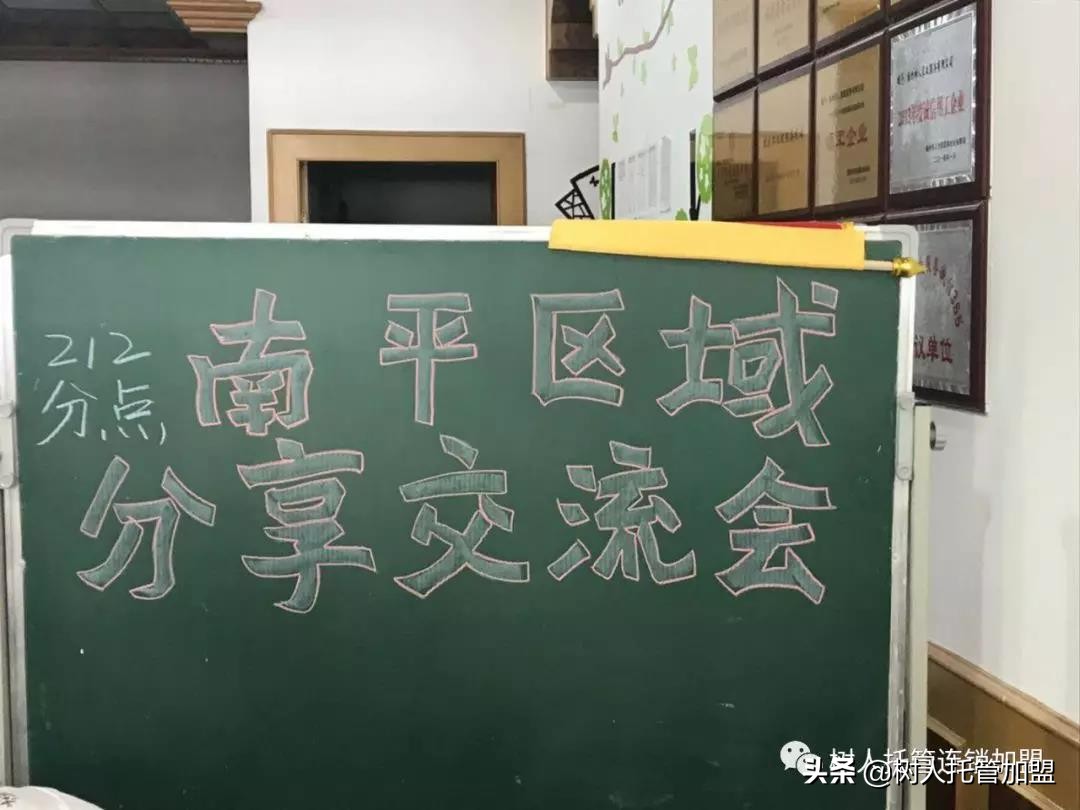 212
分点
南平区域
分享交流会
工企业
认单位
树人托管连锁加盟
头条 @树人托管加盟